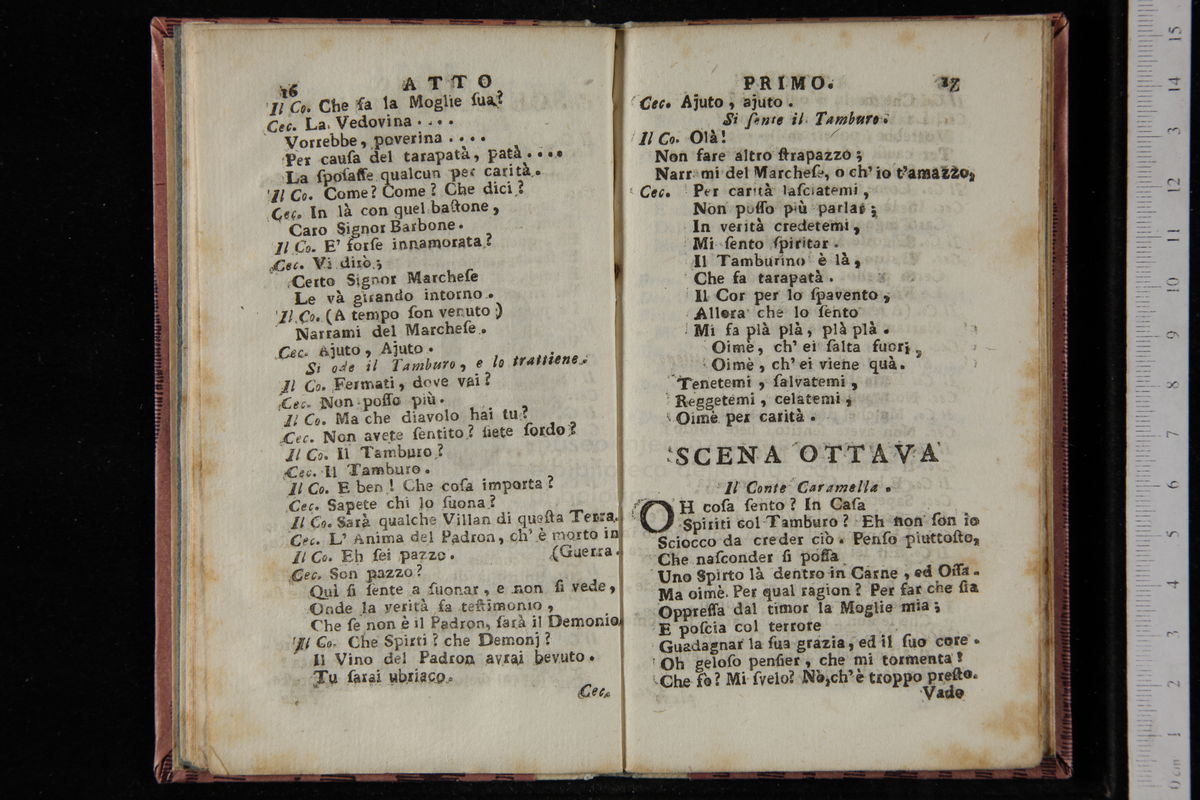 16 ATTO
Il Co. Che fa la Moglie ſua?
Cec. La Vedovina . . . .
Vorrebbe, poverina . . . .
Per cauſa del tarapatà, patà . . . .
La ſpoſaſſe qualcun per carità.
Il Co. Come? Come? Che dici?
Cec. In là con quel baſtone,
Caro Signor Barbone.
Il Co. E' forſe innamorata?
Cec. Vi dirò;
Certo Signor Marcheſe
Le và girando intorno.
Il Co. (A tempo ſon venuto)
Narrami del Marcheſe.
Cec. Ajuto, Ajuto.
Si ode il Tamburo, e lo trattiene.
Il Co. Fermati, dove vai?
Cec. Non poſſo più.
Il Co. Ma che diavolo hai tu?
Cec. Non avete ſentito? ſiete ſordo?
Il Co. Il Tamburo?
Cec. Il Tamburo.
Il Co. E ben! Che coſa importa?
Cec. Sapete chi lo ſuona?
Il Co. Sarà qualche Villan di queſta Terra.
Cec. L' Anima del Padron, ch' è morto in
Il Co. Eh ſei pazzo. (Guerra.
Cec. Son pazzo?
Qui ſi ſente a ſuonar, e non ſi vede,
Onde la verità fa teſtimonio,
Che ſe non è il Padron, ſarà il Demonio
Il Co. Che Spirti? che Demonj?
Il Vino del Padron avrai bevuto.
Tu ſarai ubriaco.
Cec.
PRIMO. 17
Cec. Ajuto, ajuto.
Si ſente il Tamburo.
Il Co. Olà!
Non fare altro ſtrapazzo;
Narrami del Marcheſe, o ch' io t'amazzo,
Cec. Per carità laſciatemi,
Non poſſo più parlar;
In verità credetemi,
Mi ſento ſpiritar.
Il Tamburino è là,
Che fa tarapatà.
Il Cor per lo ſpavento,
Allora che lo ſento
Mi fa plà plà, plà plà.
Oimè, ch' ei ſalta fuori,
Oimè, ch' ei viene quà.
Tenetemi, ſalvatemi,
Reggetemi, celatemi,
Oimè per carità.
SCENA OTTAVA
Il Conte Caramella.
OH coſa ſento? In Caſa
Spiriti col Tamburo? Eh non ſon io
Sciocco da creder ciò. Penſo piuttoſto,
Che naſconder ſi poſſa
Uno Spirto là dentro in Carne, ed Oſſa.
Ma oimè. Per qual ragion? Per far che ſia
Oppreſſa dal timor la Moglie mia;
E poſcia col terrore
Guadagnar la ſua grazia, ed il ſuo core.
Oh geloſo penſier, che mi tormenta!
Che fo? Mi ſvelo? Nò, ch' è troppo preſto.
Vado